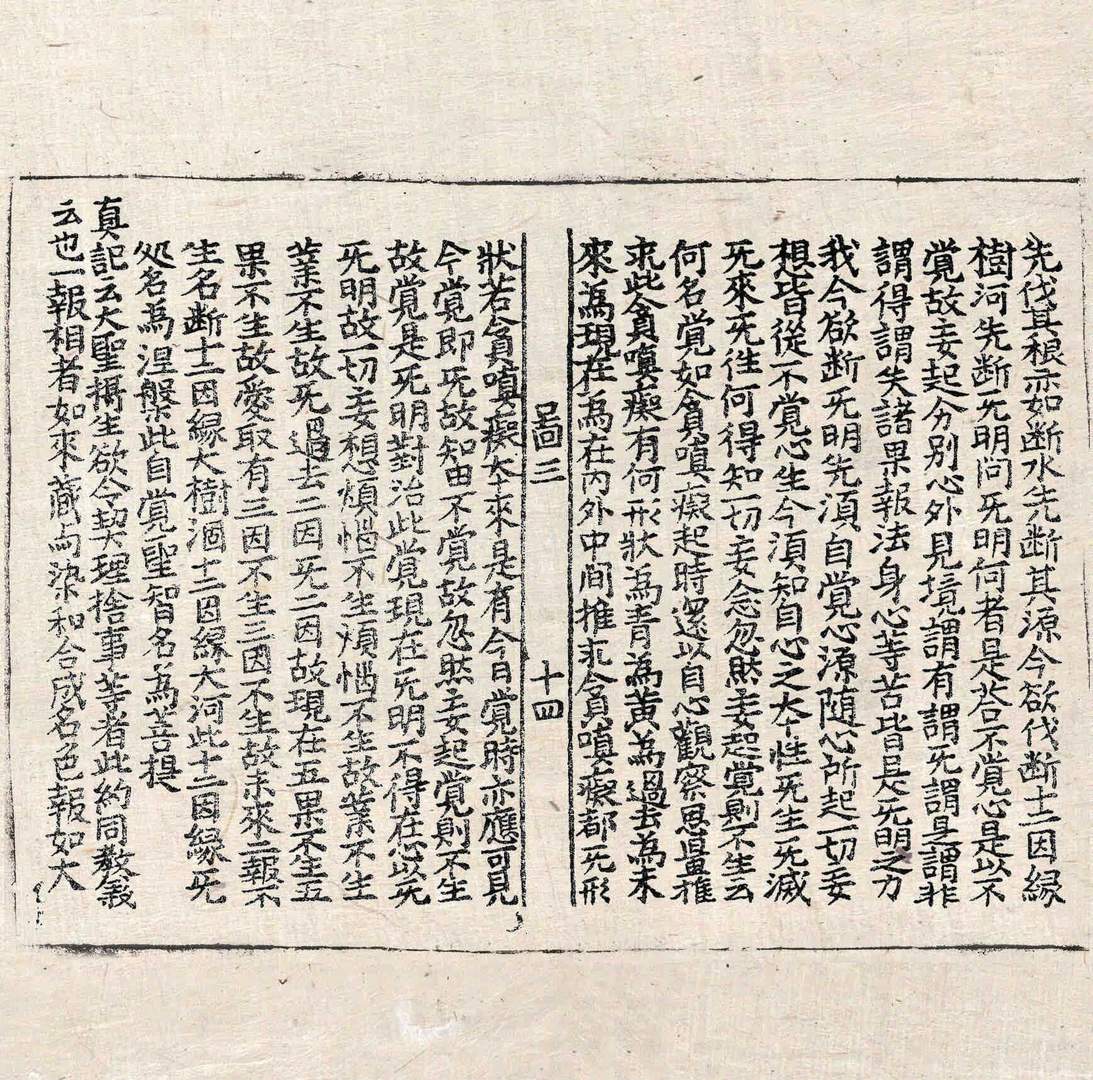 先伐其根亦如断水先断其源今欲伐断十二因縁
樹河先断无明問无明何者是荅不覺心是以不
覺故妄起分別心外見境謂有謂无謂是謂非
謂得謂失諸果報法身心等苦皆是无明之力
我今欲断无明先湏自覺心源随心所起一切妄
想皆從不覺心生今湏知自心之大本性无生无滅
无來无徃何得知一切妄念忽然妄起覺則不生云
何名覺如貪嗔癡起時還以自心觀察思量推
求此貪嗔癡有何形狀為青為黃為過去為未
來為現在為在内外中間推求今貪嗔癡都无形
啚三 十四
狀若貪嗔癡本來是有今日覺時亦應可見
今覺即无故知由不覺故忽然妄起覺則不生
故覺是无明對治此覺現在无明不得在心以无
无明故一切妄想煩惱不生煩惱不生故業不生
業不生故无過去二因无二因故現在五果不生五
果不生故愛取有三因不生三因不生故未來二報不
生名断十二因縁大樹涸十二因縁大河此十二因縁无
処名為涅槃此自覺聖智名為菩提
真記云大聖攝生欲令契理捨事等者此約同教義
云也一報相者如來藏与染和合成名色報如大